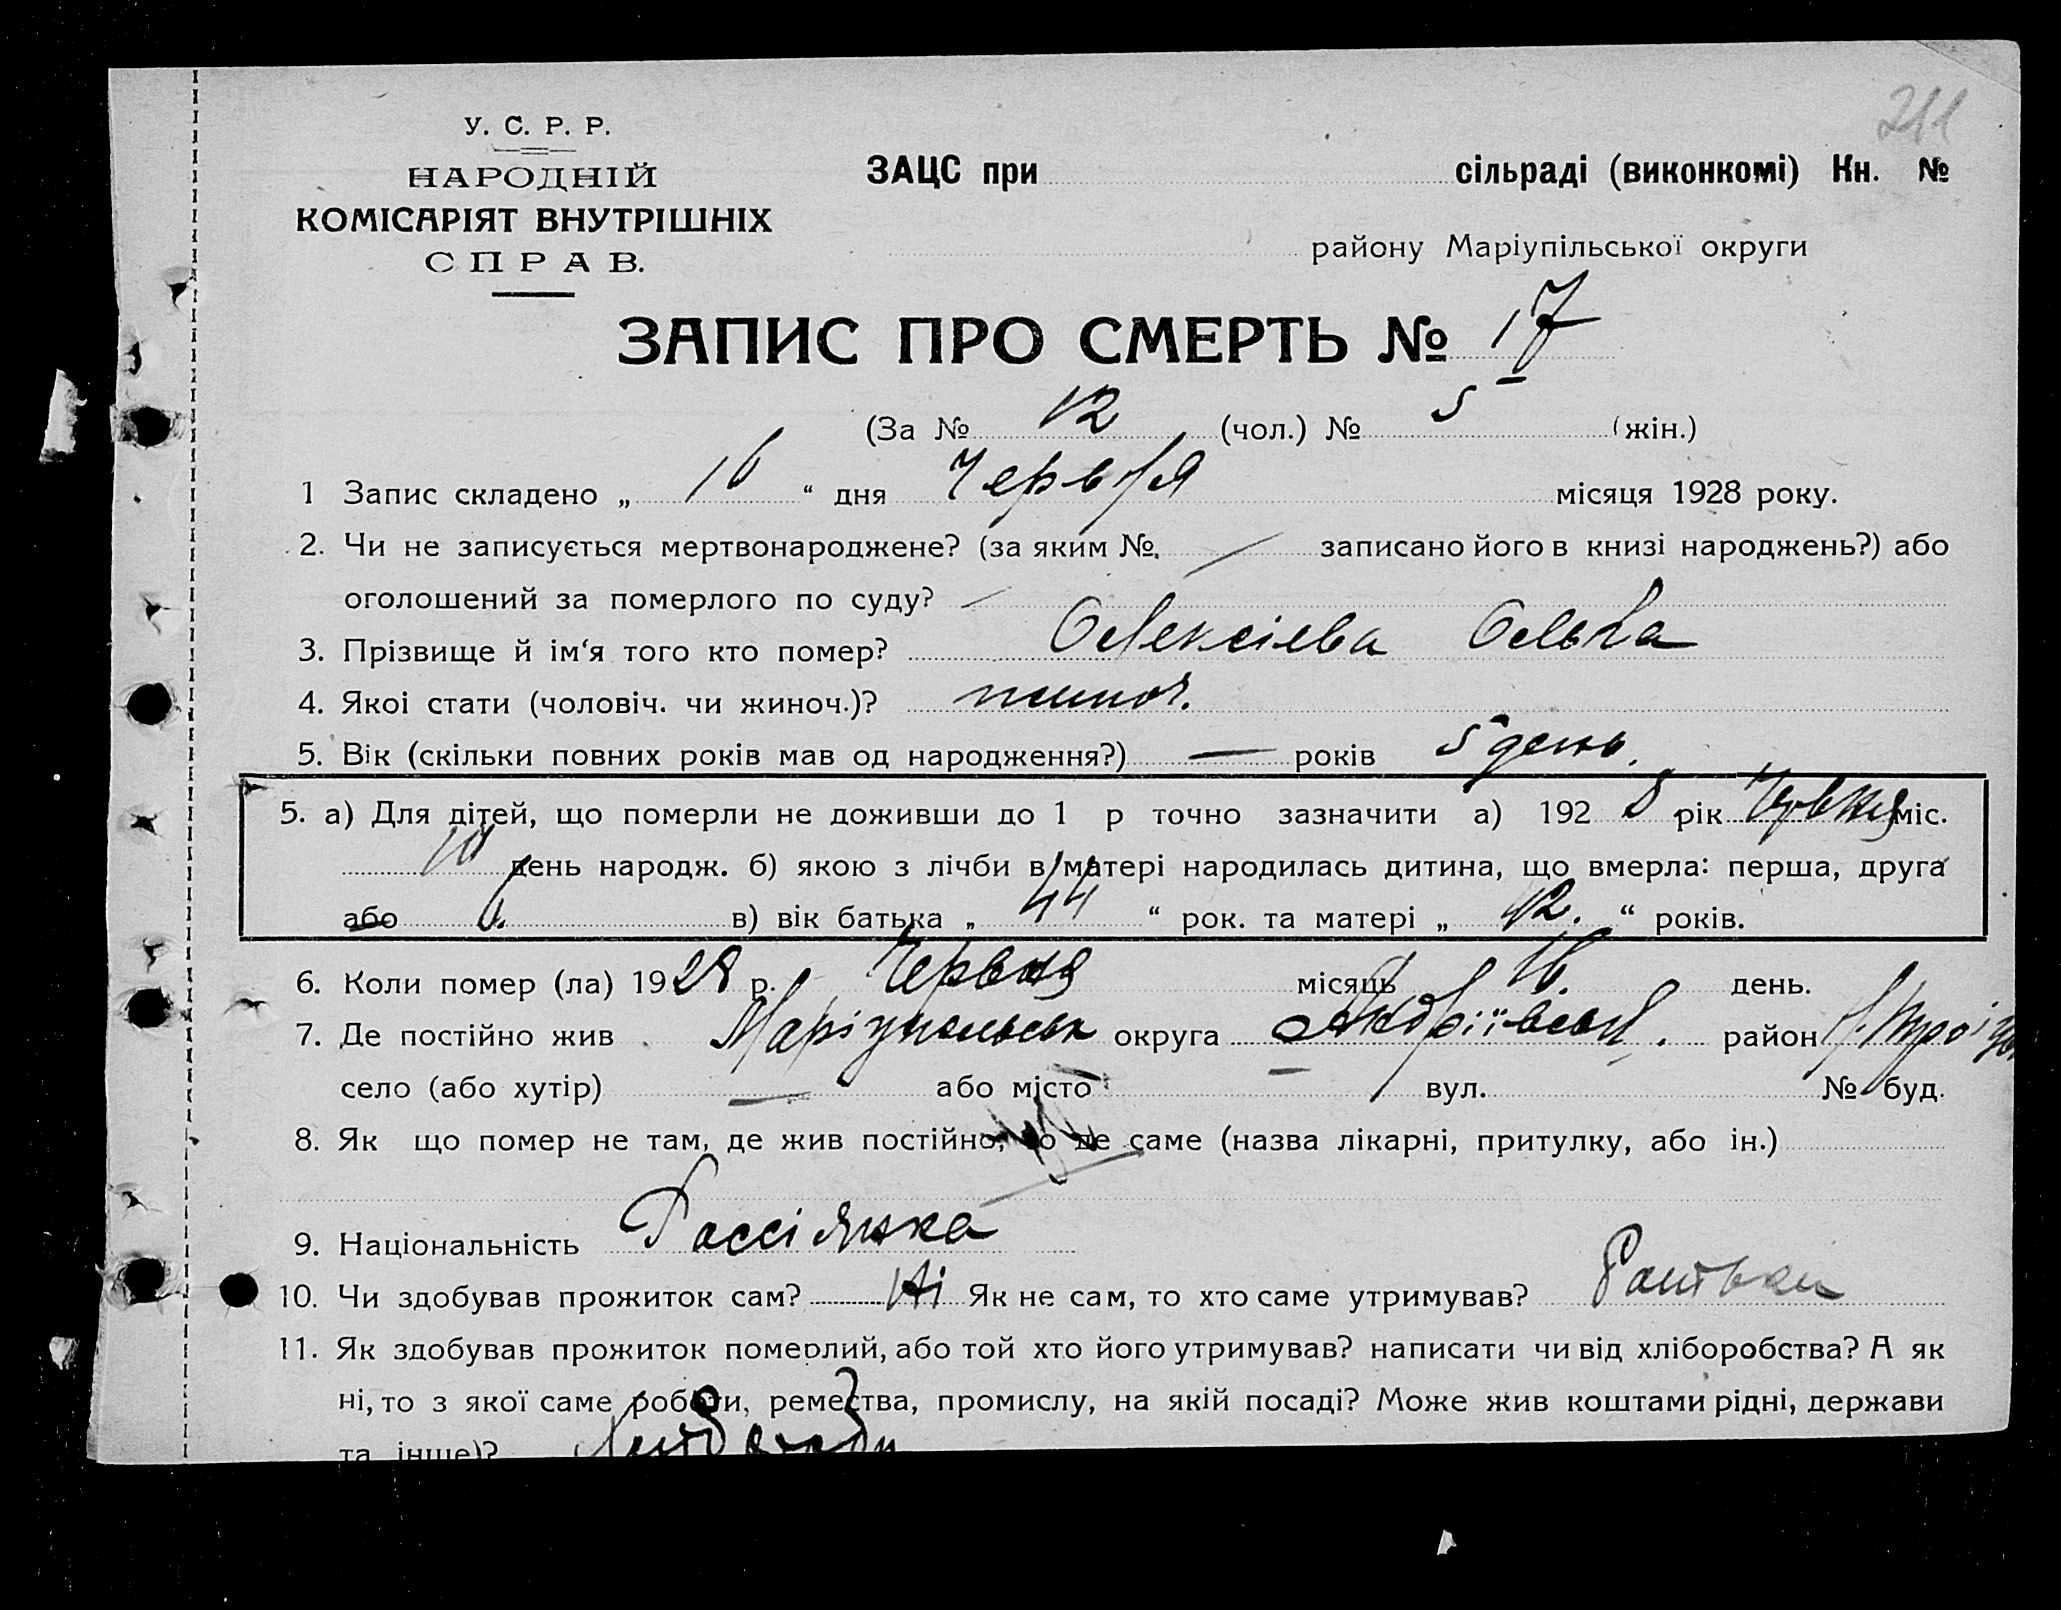 211
У. С. Р. Р.
НАРОДНІЙ
КОМІСАРІЯТ ВНУТРІШНІХ
СПРАВ.
ЗАЦС при сільраді (виконкомі) Кн. №
району Маріупільської округи
ЗАПИС ПРО СМЕРТЬ № 17
(За № 12 (чол.) № 5 (жін.)
1 Запис складено „ 16 “ дня Червня місяця 1928 року.
2. Чи не записується мертвонароджене? (за яким №. — записано його в книзі народжень?) або
оголошений за померлого по суду? —
3. Прізвище й ім‘я того кто помер? Олексієва Ольга
4. Якоі стати (чоловіч. чи жиноч.)? жиноч.
5. Вік (скільки повних років мав од народження?) — років 5 день.
5. а) Для дітей, що померли не доживши до 1 р точно зазначити а) 192 8 рік Червня міс.
10 день народж. б) якою з лічби в матері народилась дитина, що вмерла: перша, друга
або 6. в) вік батька „ 44 “ рок. та матері „ 42. “ років.
6. Коли помер (ла) 1928 р. Червня місяць 16. день.
7. Де постійно жив Маріупольськ округа Андріївськ. район
село (або хутір) — або місто — вул. № буд.
8. Як що помер не там, де жив постійно, то де саме (назва лікарні, притулку, або ін.)
9. Національність Россіянка
10. Чи здобував прожиток сам? Ні Як не сам, то хто саме утримував? Батьки
11. Як здобував прожиток померлий, або той хто його утримував? написати чи від хліборобства? А як
ні, то з якої саме роботи, ремества, промислу, на якій посаді? Може жив коштами рідні, держави
та інше)?